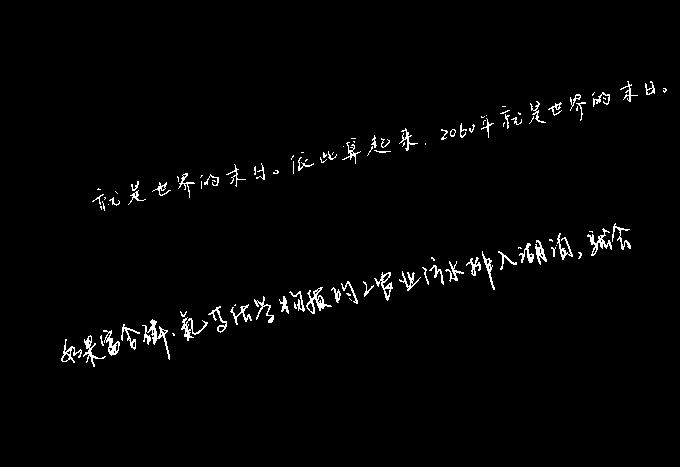 就是世界的末日。依此算起来，2060年就是世界的末日。
如果富含磷、氮等化学物质的工农业污水排入湖泊，就会